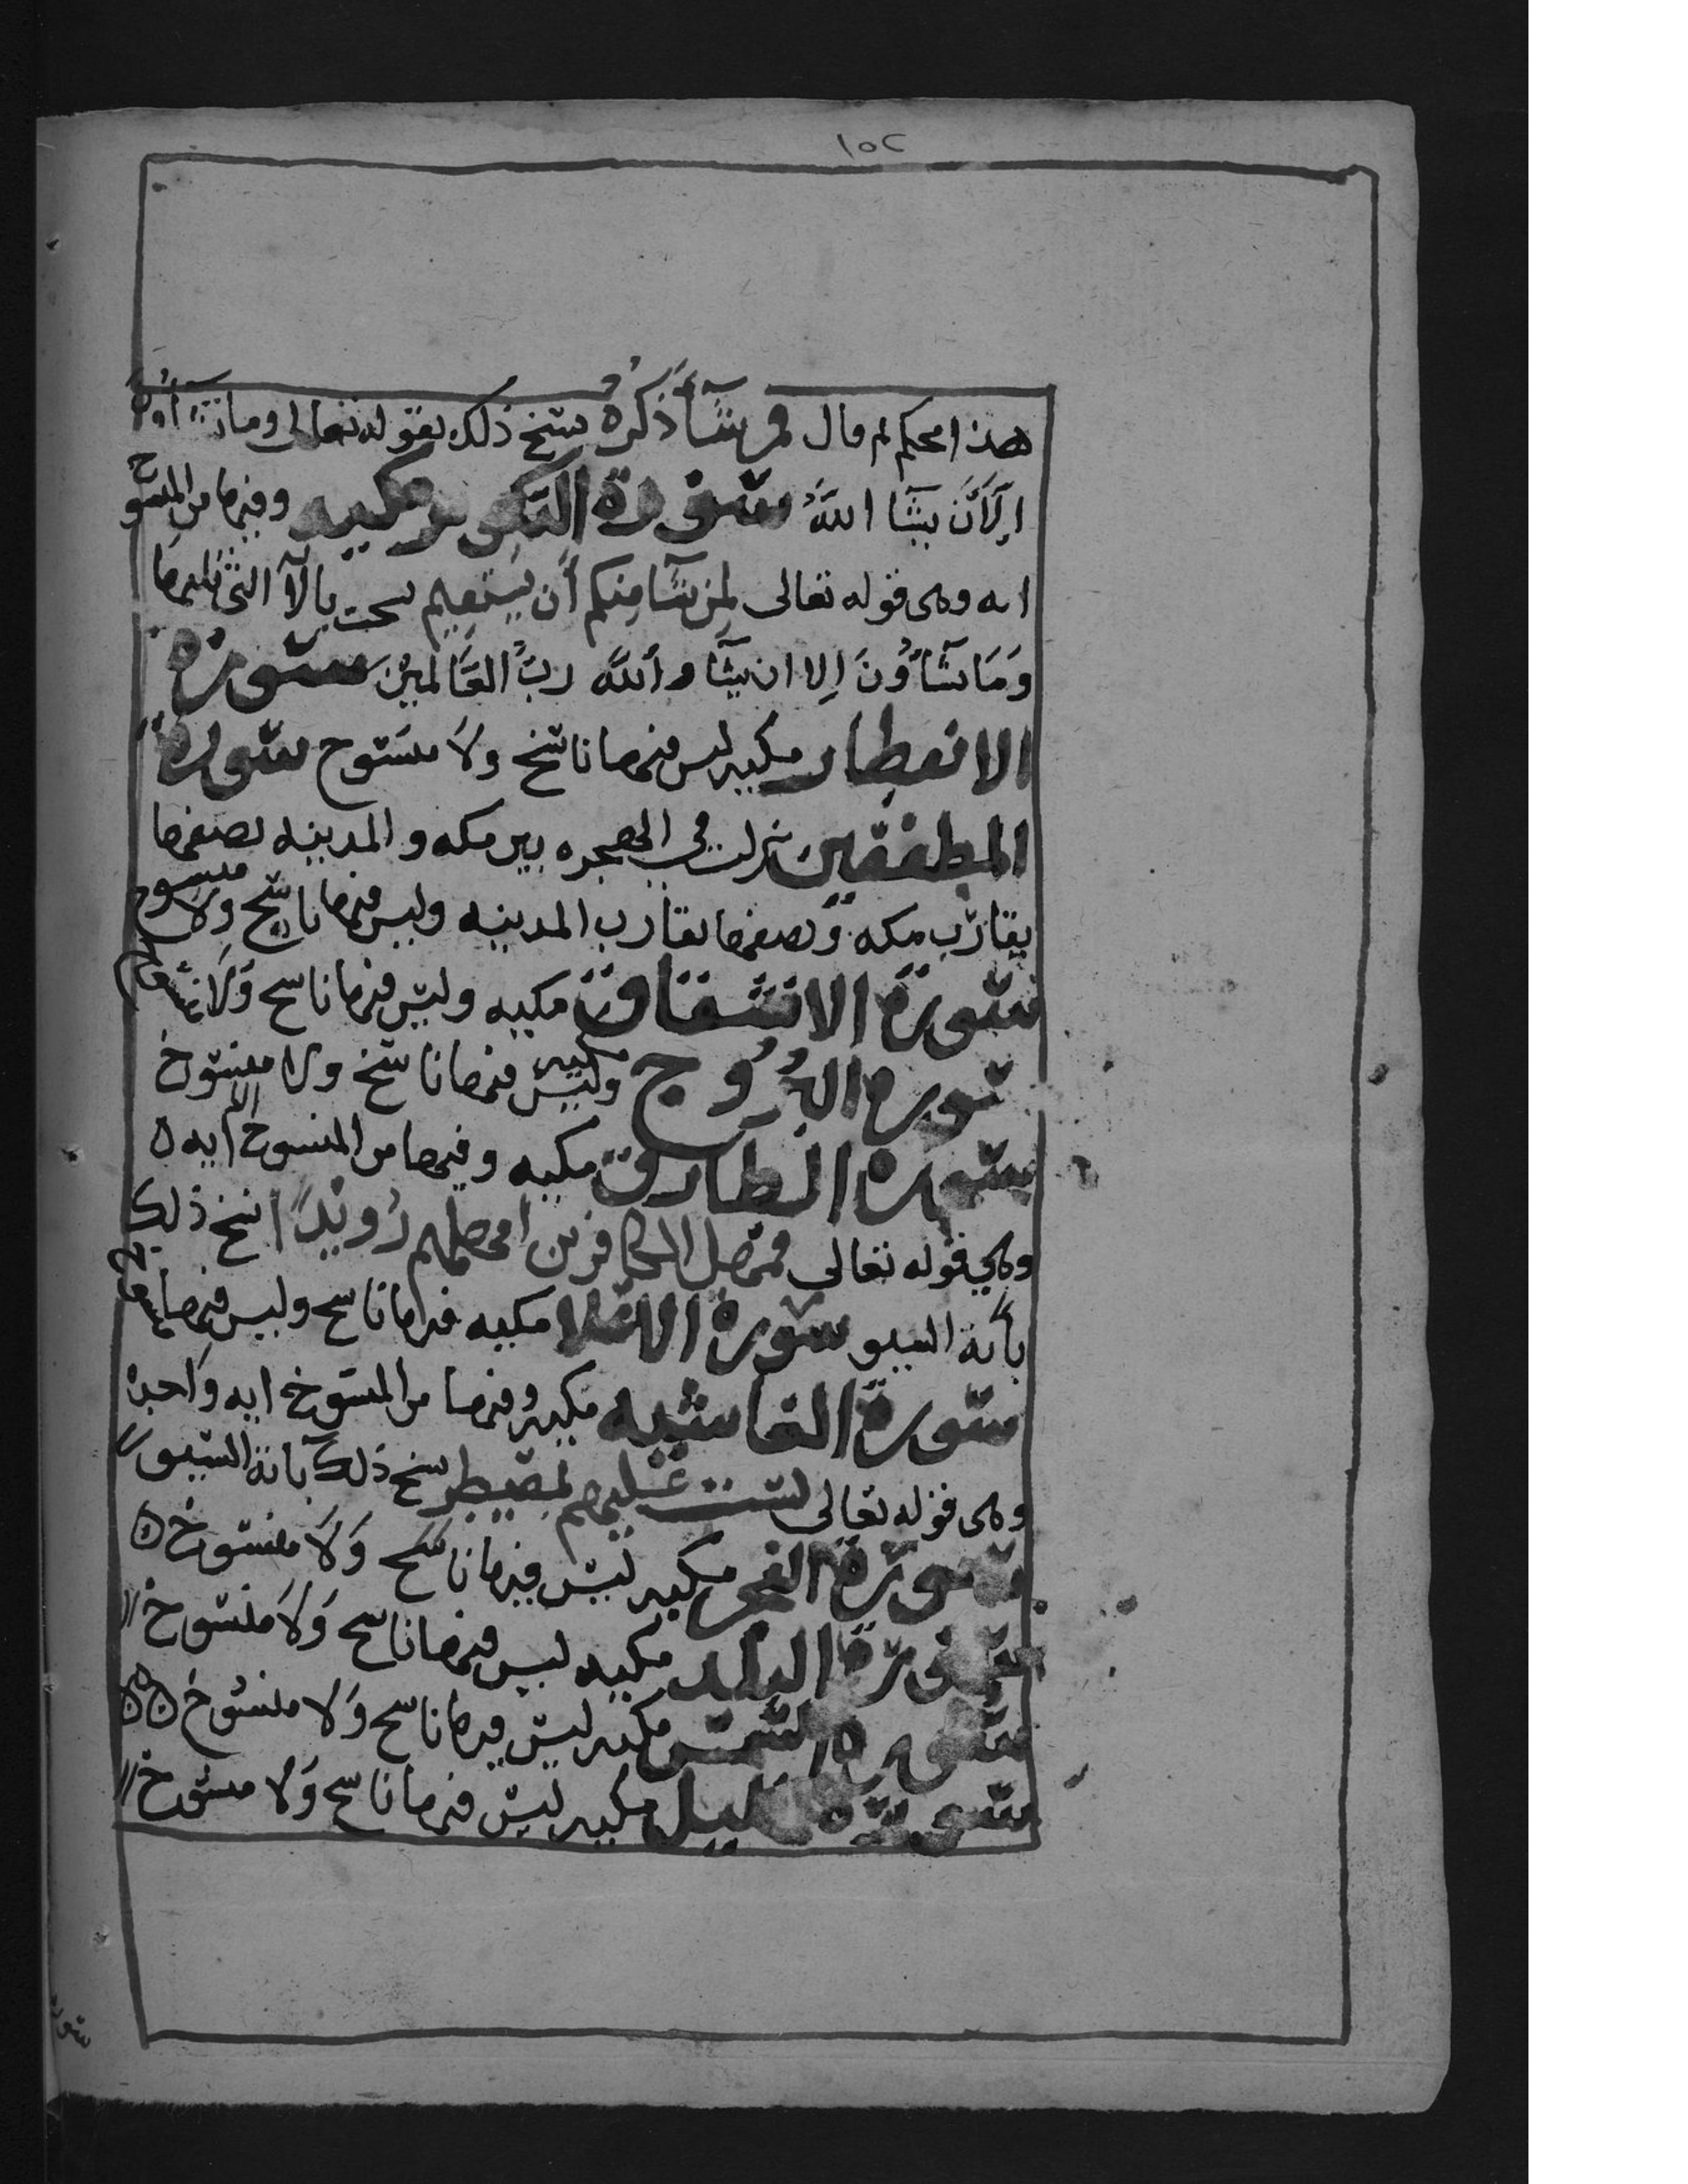 ١٥٢
هذا محكم ثم قال فمن شَآءَ ذَكَرَهُ نسخ ذلك بقوله تعالى وما تشآؤن
اِلَّآ اَنْ يشَآ اللهُ سورة التكوير مكيه وفيها من المنسوخ
ايه وهى قوله تعالى لِمَنْ شَآ مِنكم أَن يَستَقِيم نسخت بالآ التى تليها
وَمَا تشَآؤُنَ اِلا ان يشآ الله ربُّ العَالمينَ سورة
الانفطار مكيه ليس فيها ناسخ ولَا منسوخ سورة
المطففين نزلت في الهجره بين مكه والمدينه نصفها
يقارب مكه ونصفها يقارب المدينه وليس فيها ناسخ ولا منسوخ
سورة الانشقاق مكيه وليس فيها ناسخ وَلَا منسوخ
سورة البُرُوج مكيه وليس فيها ناسخ ولا منسوخ
سورة الطارق مكيه وفيها من المنسوخ ايه
وهي قوله تعالى فمهل الكافرين امهلهم رُوَيْدًا نسخ ذلك
بأية السيف سورة الاعلا مكيه فيها ناسخ وليس فيها منسوخ
سورة الغاشيه مكيه وفيها من المنسوخ ايه واحده
وهى قوله تعالى لست عليهم بمصيطر نسخ ذلك بآية السيف
سورة الفجر مكيه ليس فيها ناسخ وَلَا منسوخ
سورة البلد مكيه ليس فيها ناسخ وَلَا منسوخ
سورة الشمس مكيه ليس فيها ناسخ وَلا منسوخ
سورة الليل مكيه ليس فيها ناسخ وَلا منسوخ
سورة